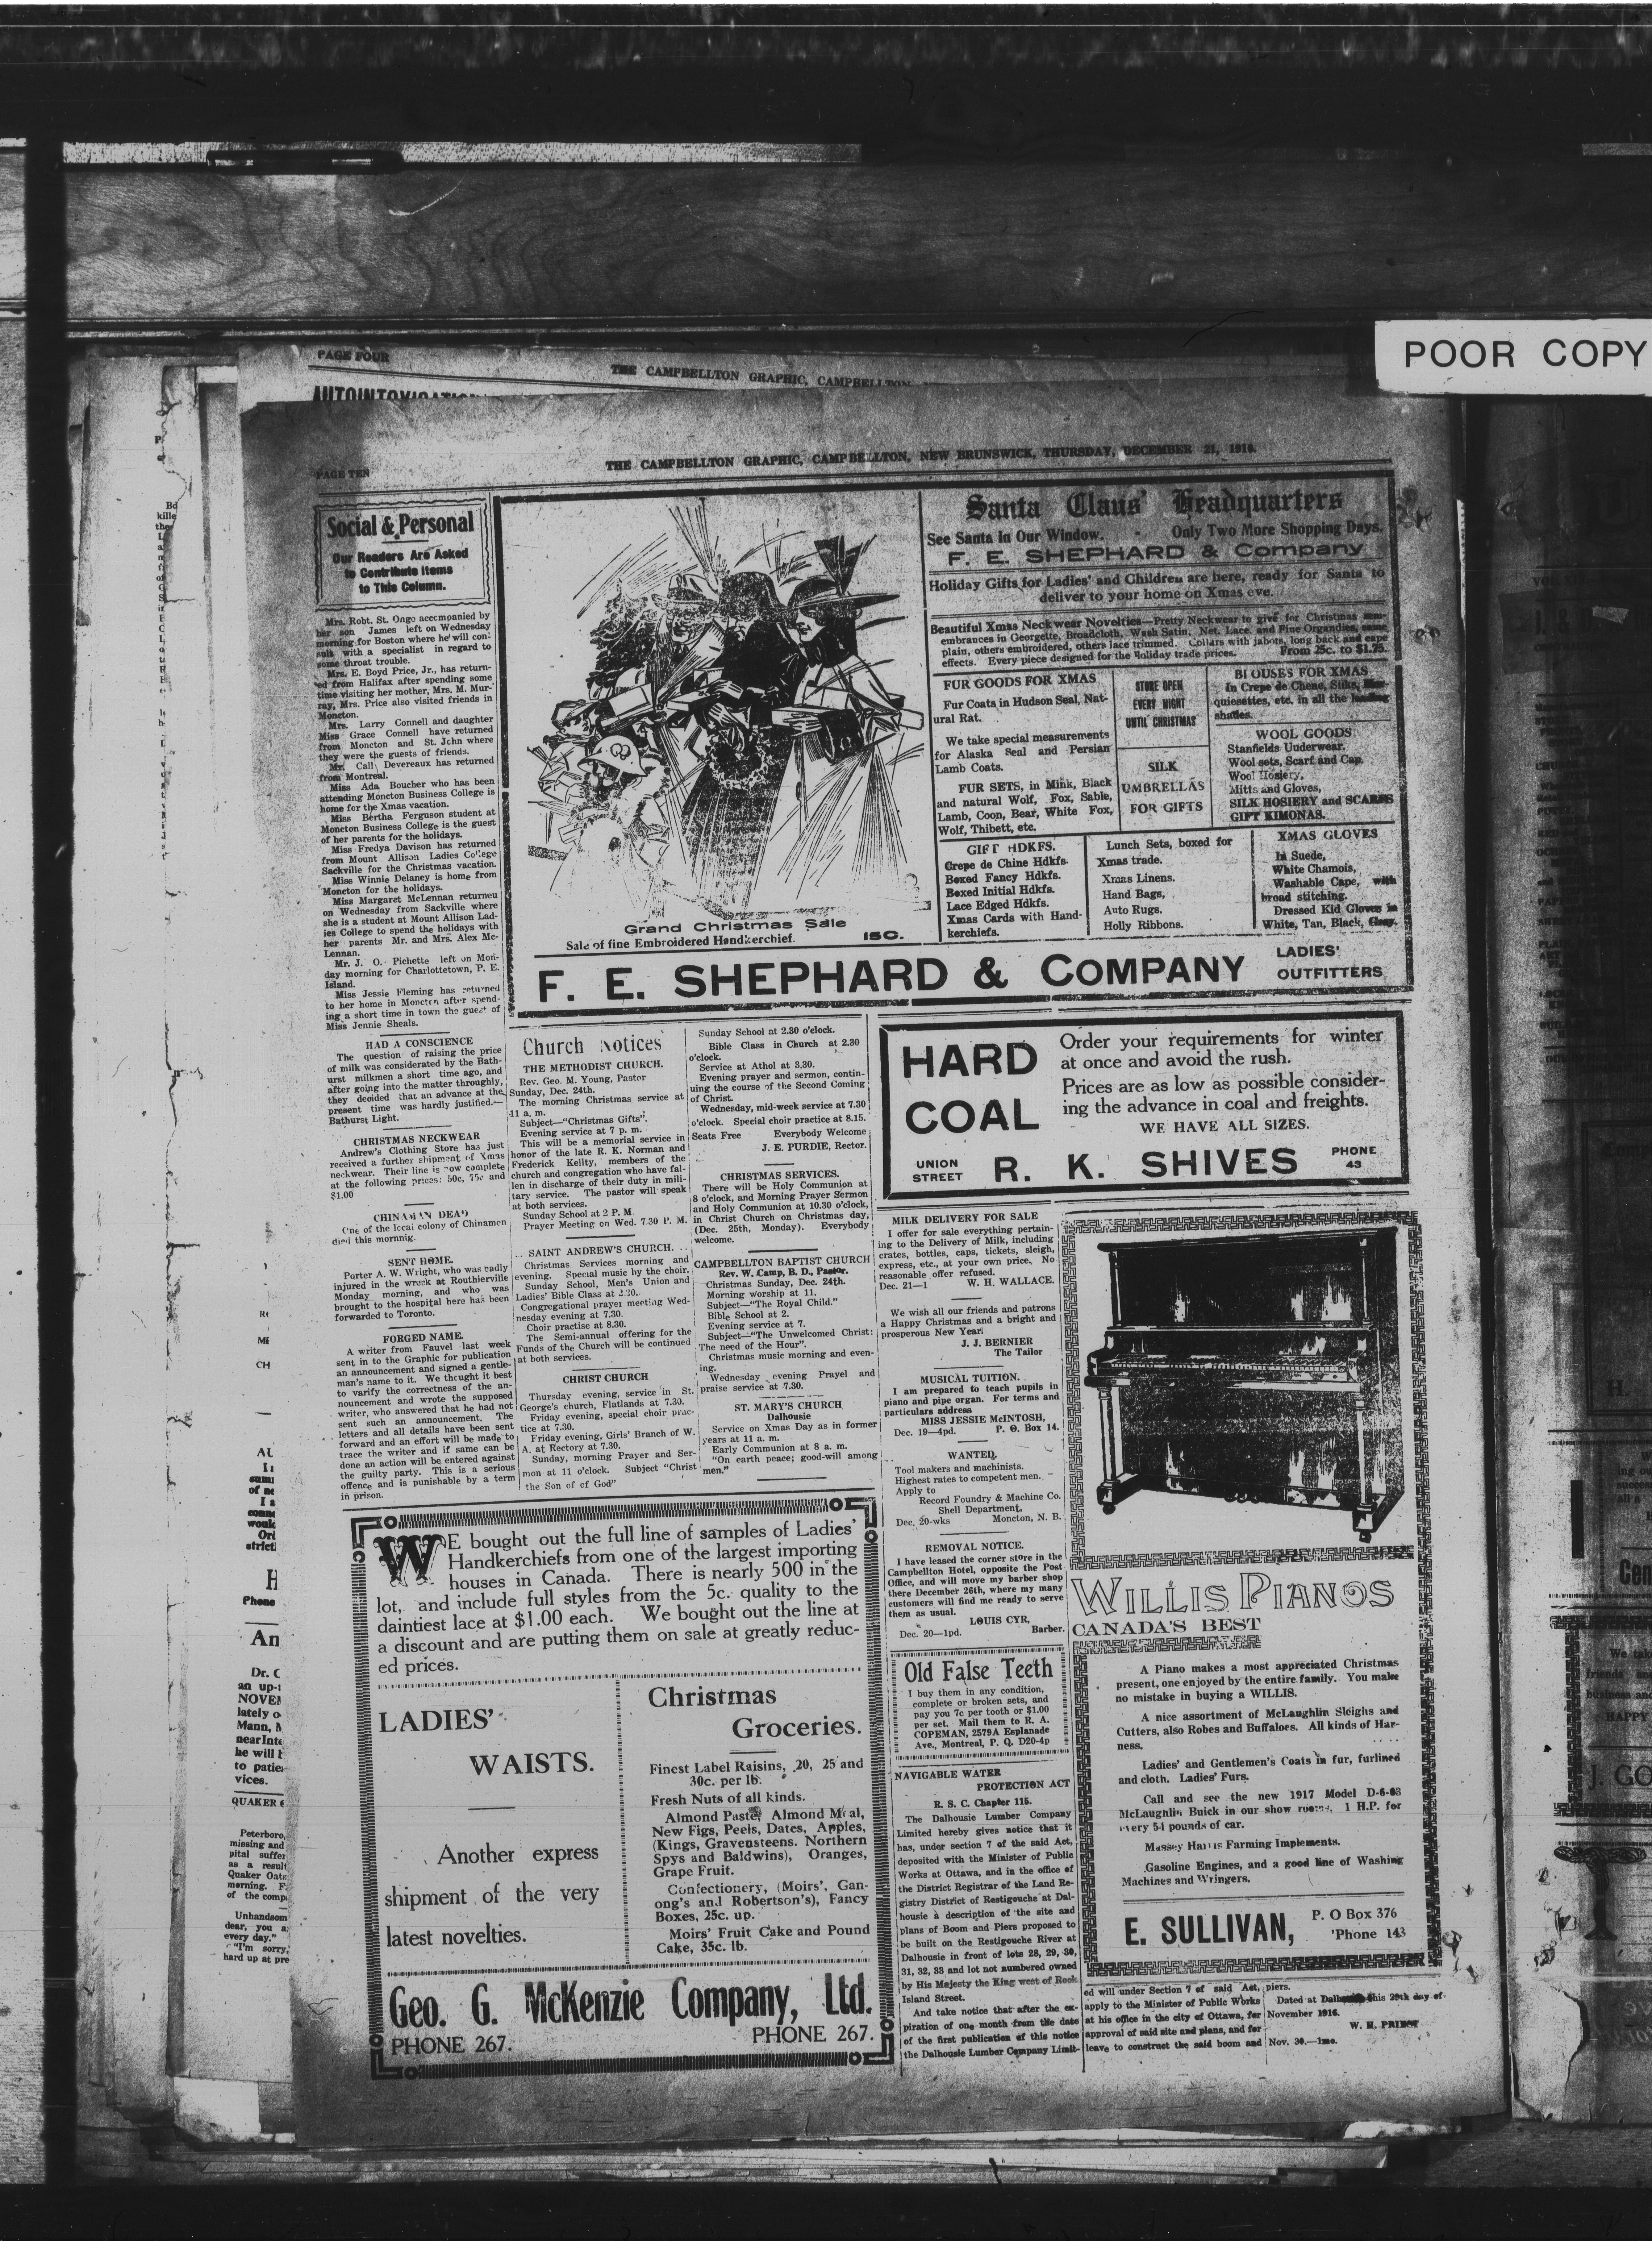 POOR COPY
PAGE FOUR
THE CAMPBELLTON GRAPHIC, CAMPBELLTON
PAGE TEN
THE CAMPBELLTON GRAPHIC, CAMPBELLTON, NEW BRUNSWICK, THURSDAY, DECEMBER 21, 1916.
Social & Personal
Our Readers Are Asked
to Contribute Items
to This Column.
Mrs. Robt. St. Onge accompanied by
her son James left on Wednesday
morning for Boston where he will con-
sult with a specialist in regard to
some throat trouble.
Mrs. E. Boyd Price, Jr., has return-
ed from Halifax after spending some
time visiting her mother, Mrs. M. Mur-
ray, Mrs. Price also visited friends in
Moncton.
Mrs. Larry Connell and daughter
Miss Grace Connell have returned
from Moncton and St. John where
they were the guests of friends.
Mr. Call Devereaux has returned
from Montreal.
Miss Ada Boucher who has been
attending Moncton Business College is
home for the Xmas vacation.
Miss Bertha Ferguson student at
Moncton Business College is the guest
of her parents for the holidays.
Miss Fredya Davison has returned
from Mount Allison Ladies College
Sackville for the Christmas vacation.
Miss Winnie Delaney is home from
Moncton for the holidays.
Miss Margaret McLennan returned
on Wednesday from Sackville where
she is a student at Mount Allison Lad-
ies College to spend the holidays with
her parents Mr. and Mrs. Alex Mc-
Lennan.
Mr. J. O. Pichette left on Mon-
day morning for Charlottetown, P. E.
Island.
Miss Jessie Fleming has returned
to her home in Moncton after spend-
ing a short time in town the guest of
Miss Jennie Sheals.
HAD A CONSCIENCE
The question of raising the price
of milk was considered by the Bath-
urst milkmen a short time ago, and
after going into the matter throughly,
they decided that an advance at the
present time was hardly justified.—
Bathurst Light.
CHRISTMAS NECKWEAR
Andrew's Clothing Store has just
received a further shipment of Xmas
neckwear. Their line is now complete
at the following prices: 50c, 75c and
$1.00
CHINAMAN DEAD
One of the local colony of Chinamen
died this mornnig.
SENT HOME.
Porter A. W. Wright, who was badly
injured in the wreck at Routhierville
Monday morning, and who was
brought to the hospital here has been
forwarded to Toronto.
FORGED NAME.
A writer from Fauvel last week
sent in to the Graphic for publication
an announcement and signed a gentle-
man's name to it. We thought it best
to varify the correctness of the an-
nouncement and wrote the supposed
writer, who answered that he had not
sent such an announcement. The
letters and all details have been sent
forward and an effort will be made to
trace the writer and if same can be
done an action will be entered against
the guilty party. This is a serious
offence and is punishable by a term
in prison.
Grand Christmas Sale
Sale of fine Embroidered Handkerchief. 15C.
Santa Claus' Headquarters
See Santa in Our Window. - Only Two More Shopping Days.
F. E. SHEPHARD & Company
Holiday Gifts for Ladies' and Children are here, ready for Santa to
deliver to your home on Xmas eve.
Beautiful Xmas Neckwear Novelties—Pretty Neckwear to give for Christmas rem-
embrances in Georgette, Broadcloth, Wash Satin, Net, Lace, and Fine Organdies, some
plain, others embroidered, others lace trimmed. Collars with jabots, long back and cape
effects. Every piece designed for the Holiday trade prices. From 25c. to $1.75.
FUR GOODS FOR XMAS
Fur Coats in Hudson Seal, Nat-
ural Rat.
We take special measurements
for Alaska Seal and Persian
Lamb Coats.
FUR SETS, in Mink, Black
and natural Wolf, Fox, Sable,
Lamb, Coon, Bear, White Fox,
Wolf, Thibett, etc.
STORE OPEN
EVERY NIGHT
UNTIL CHRISTMAS
SILK
UMBRELLAS
FOR GIFTS
BLOUSES FOR XMAS
In Crepe de Chene, Silks,
quiesettes, etc. in all the leading
shades.
WOOL GOODS
Stanfields Underwear,
Wool sets, Scarf and Cap.
Wool Hosiery,
Mitts and Gloves,
SILK HOSIERY and SCARFS
GIFT KIMONAS.
GIFT HDKFS.
Crepe de Chine Hdkfs.
Boxed Fancy Hdkfs.
Boxed Initial Hdkfs.
Lace Edged Hdkfs.
Xmas Cards with Hand-
kerchiefs.
Lunch Sets, boxed for
Xmas trade.
Xmas Linens.
Hand Bags,
Auto Rugs.
Holly Ribbons.
XMAS GLOVES
In Suede,
White Chamois,
Washable Cape, with
broad stitching.
Dressed Kid Gloves in
White, Tan, Black, Grey.
F. E. SHEPHARD & COMPANY LADIES' OUTFITTERS
Church Notices
THE METHODIST CHURCH.
Rev. Geo. M. Young, Pastor
Sunday, Dec. 24th.
The morning Christmas service at
11 a. m.
Subject—"Christmas Gifts".
Evening service at 7 p. m.
This will be a memorial service in
honor of the late R. K. Norman and
Frederick Kellty, members of the
church and congregation who have fal-
len in discharge of their duty in mili-
tary service. The pastor will speak
at both services.
Sunday School at 2 P. M.
Prayer Meeting on Wed. 7.30 P. M.
.. SAINT ANDREW'S CHURCH. ..
Christmas Services morning and
evening. Special music by the choir.
Sunday School, Men's Union and
Ladies' Bible Class at 2.30.
Congregational prayer meeting Wed-
nesday evening at 7.30.
Choir practise at 8.30.
The Semi-annual offering for the
Funds of the Church will be continued
at both services.
CHRIST CHURCH
Thursday evening, service in St.
George's church, Flatlands at 7.30.
Friday evening, special choir prac-
tice at 7.30.
Friday evening, Girls' Branch of W.
A. at Rectory at 7.30.
Sunday, morning Prayer and Ser-
mon at 11 o'clock. Subject "Christ
the Son of of God"
Sunday School at 2.30 o'clock.
Bible Class in Church at 2.30
o'clock.
Service at Athol at 3.30.
Evening prayer and sermon, contin-
uing the course of the Second Coming
of Christ.
Wednesday, mid-week service at 7.30
o'clock. Special choir practice at 8.15.
Seats Free Everybody Welcome
J. E. PURDIE, Rector.
CHRISTMAS SERVICES.
There will be Holy Communion at
8 o'clock, and Morning Prayer Sermon
and Holy Communion at 10.30 o'clock,
in Christ Church on Christmas day,
(Dec. 25th, Monday). Everybody
welcome.
CAMPBELLTON BAPTIST CHURCH
Rev. W. Camp, B. D., Pastor.
Christmas Sunday, Dec. 24th.
Morning worship at 11.
Subject—"The Royal Child."
Bible School at 2.
Evening service at 7.
Subject—"The Unwelcomed Christ:
The need of the Hour".
Christmas music morning and even-
ing.
Wednesday evening Prayel and
praise service at 7.30.
ST. MARY'S CHURCH
Dalhousie
Service on Xmas Day as in former
years at 11 a. m.
Early Communion at 8 a. m.
"On earth peace; good-will among
men."
HARD
COAL
Order your requirements for winter
at once and avoid the rush.
Prices are as low as possible consider-
ing the advance in coal and freights.
WE HAVE ALL SIZES.
UNION STREET R. K. SHIVES PHONE 43
MILK DELIVERY FOR SALE
I offer for sale everything pertain-
ing to the Delivery of Milk, including
crates, bottles, caps, tickets, sleigh,
express, etc., at your own price. No
reasonable offer refused.
Dec. 21—1 W. H. WALLACE.
We wish all our friends and patrons
a Happy Christmas and a bright and
prosperous New Year.
J. J. BERNIER
The Tailor
MUSICAL TUITION.
I am prepared to teach pupils in
piano and pipe organ. For terms and
particulars address
MISS JESSIE McINTOSH,
Dec. 19—4pd. P. O. Box 14.
WANTED.
Tool makers and machinists.
Highest rates to competent men.
Apply to
Record Foundry & Machine Co.
Shell Department,
Dec. 20-wks Moncton, N. B.
REMOVAL NOTICE.
I have leased the corner store in the
Campbellton Hotel, opposite the Post
Office, and will move my barber shop
there December 26th, where my many
customers will find me ready to serve
them as usual.
LOUIS CYR,
Dec. 20—1pd. Barber.
Old False Teeth
I buy them in any condition,
complete or broken sets, and
pay you 7c per tooth or $1.00
per set. Mail them to R. A.
COPEMAN, 2579A Esplanade
Ave., Montreal, P. Q. D20-4p
NAVIGABLE WATER
PROTECTION ACT
R. S. C. Chapter 115.
The Dalhousie Lumber Company
Limited hereby gives notice that it
has, under section 7 of the said Act,
deposited with the Minister of Public
Works at Ottawa, and in the office of
the District Registrar of the Land Re-
gistry District of Restigouche at Dal-
housie a description of the site and
plans of Boom and Piers proposed to
be built on the Restigouche River at
Dalhousie in front of lots 28, 29, 30,
31, 32, 33 and lot not numbered owned
by His Majesty the King west of Rock
Island Street.
And take notice that after the ex-
piration of one month from the date
of the first publication of this notice
the Dalhousie Lumber Company Limit-
ed will under Section 7 of said Act,
apply to the Minister of Public Works
at his office in the city of Ottawa, for
approval of said site and plans, and for
leave to construct the said boom and
piers.
Dated at this 29th day of
November 1916.
W. H. PRIEST
Nov. 30.—1mo.
WILLIS PIANOS
CANADA'S BEST
A Piano makes a most appreciated Christmas
present, one enjoyed by the entire family. You make
no mistake in buying a WILLIS.
A nice assortment of McLaughlin Sleighs and
Cutters, also Robes and Buffaloes. All kinds of Har-
ness.
Ladies' and Gentlemen's Coats in fur, furlined
and cloth. Ladies' Furs.
Call and see the new 1917 Model D-6-63
McLaughlin Buick in our show rooms, 1 H.P. for
every 54 pounds of car.
Massey Harris Farming Implements.
Gasoline Engines, and a good line of Washing
Machines and Wringers.
E. SULLIVAN, P. O Box 376
'Phone 143
WE bought out the full line of samples of Ladies'
Handkerchiefs from one of the largest importing
houses in Canada. There is nearly 500 in the
lot, and include full styles from the 5c. quality to the
daintiest lace at $1.00 each. We bought out the line at
a discount and are putting them on sale at greatly reduc-
ed prices.
LADIES'
WAISTS.
Another express
shipment of the very
latest novelties.
Christmas
Groceries.
Finest Label Raisins, 20, 25 and
30c. per lb.
Fresh Nuts of all kinds.
Almond Paste, Almond Meal,
New Figs, Peels, Dates, Apples,
(Kings, Gravensteens. Northern
Spys and Baldwins), Oranges,
Grape Fruit.
Confectionery, (Moirs', Gan-
ong's and Robertson's), Fancy
Boxes, 25c. up.
Moirs' Fruit Cake and Pound
Cake, 35c. lb.
Geo. G. McKenzie Company, Ltd.
PHONE 267. PHONE 267.